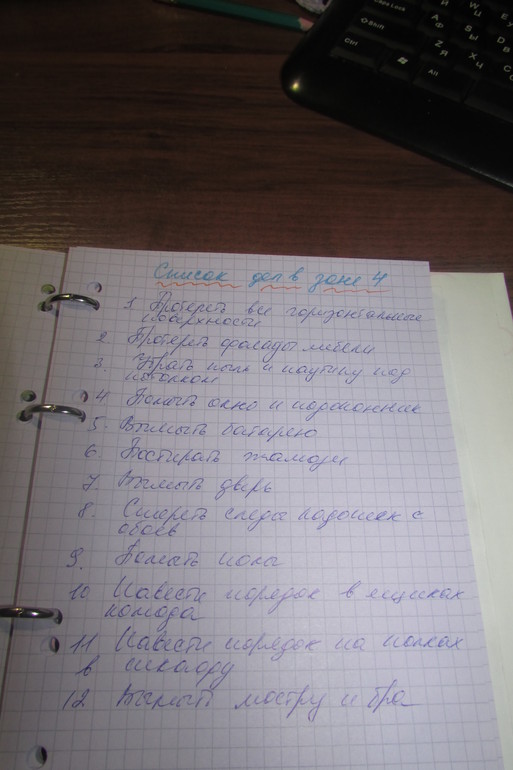 Caps Lock
Shift
Ctrl
Alt
Список дел в зоне 4
1. Протереть все горизонтальные
поверхности
2. Протереть фасады мебели
3. Убрать пыль и паутину под
потолком
4 Помыть окно и подоконник
5. Вымыть батарею
6. Постирать жалюзи
7. Вымыть дверь
8. Стереть следы с
обоев
9. Помыть полы
10 Навести порядок в ящиках
комода
11 Навести порядок на полках
в шкафу
12 Вымыть люстру и бра